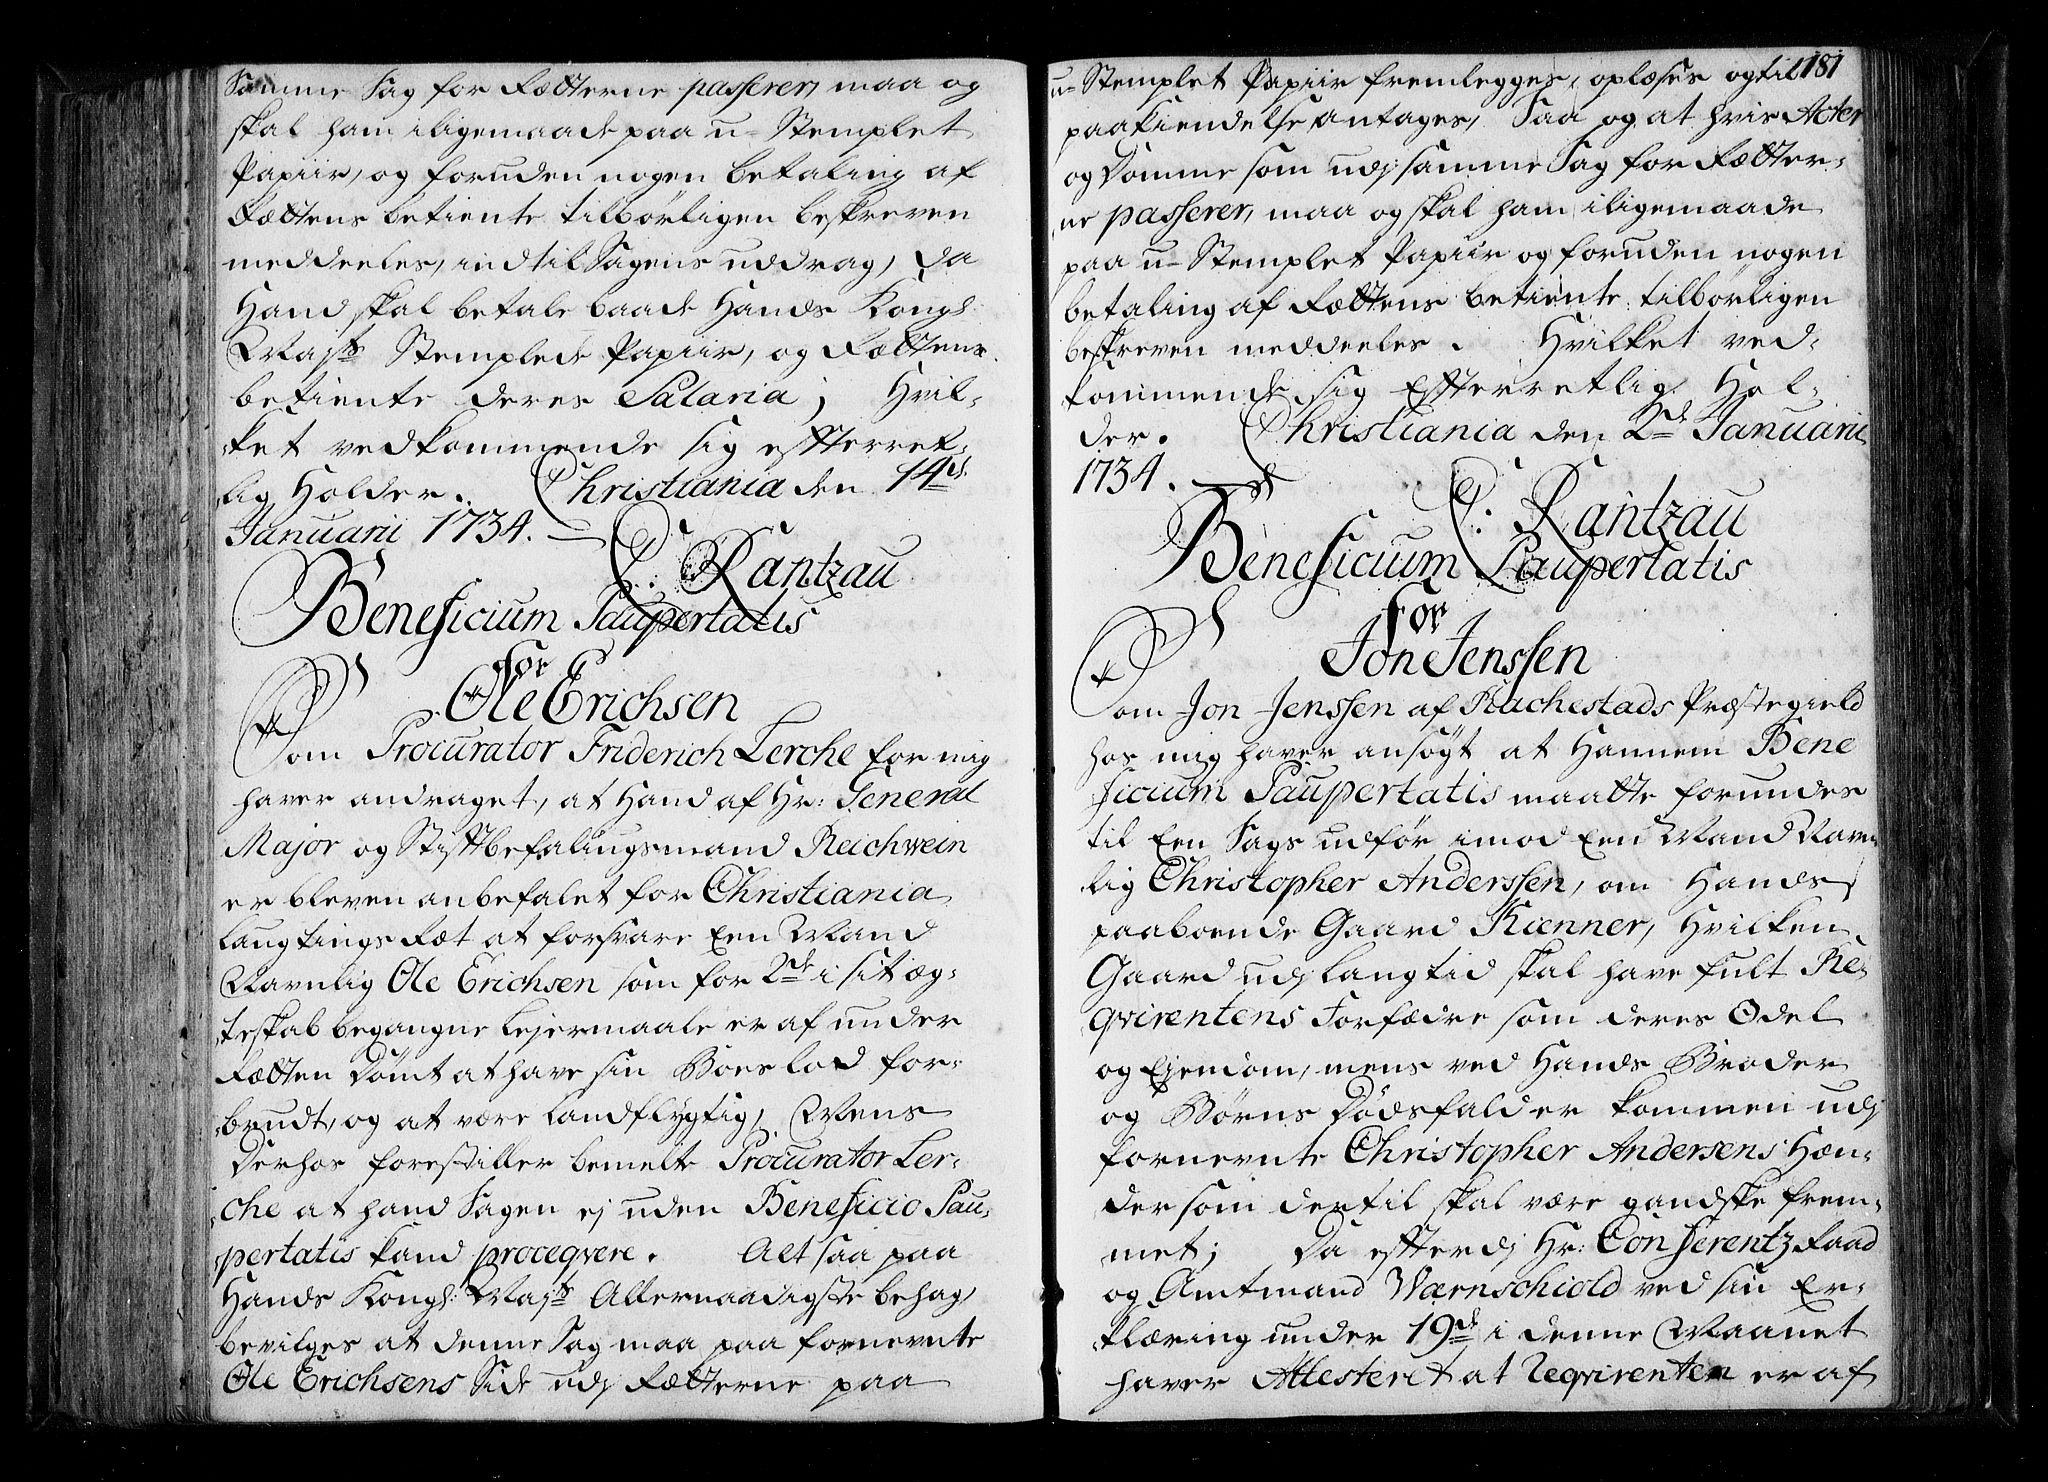 Samme Sag for Rætterne passerer, maa og
skal ham iligemaade paa u-Stemplet
Papiir, og foruden nogen betaling af
Rættens betiente tilbörligen beskreven
meddeeles, indtil Sagens uddrag, da
Hand skal betale baade Hands Kongl:
Mayts Stemplede Papiir, og Rættens
betiente deres Salaria; Hvil-
ket vedkommende sig efterret-
lig Holder. Christiania den 14de
Januarii 1734.
C: Rantzau
Beneficium Paupertatis
for
Ole Erichsen
Som Procurator Friderich Lerche for mig
haver andraget, at Hand af Hr: General
Major og Stiftbefalingsmand Reichwein
er bleven anbefalet for Christiania
Laugtings Ræt at forsvare Een Mand
Navnlig Ole Erichsen som for 2de i sit æg-
teskab begangne Lejermaale er af under
Rætten Dömt at have sin Boes lod for-
brudt, og at være Landflygtig, Mens
Derhos forestiller bemelte Procurator Ler-
che at hand Sagen ej uden Beneficio Pau-
pertatis kand proceqvere. Alt saa paa
Hands Kongl: Mayts Allernaadigste behag,
bevilges at denne Sag maa paa fornevnte
Ole Erichsens Side udj Rætterne paa
181
u-Stemplet Papiir fremlegges, oplæses og til
paakiendelse antages, Saa og at hvis Acter
og Domme som udj samme Sag for Rætter-
ne passerer, maa og skal ham iligemaade
paa u-Stemplet Papiir og foruden nogen
betaling af Rættens betiente tilbörligen
beskreven meddeeles. Hvilket ved-
kommende sig Efterretlig Hol-
der. Christiania den 2de Januarii
1734.
C: Rantzau
Beneficium Paupertatis
for
Jon Jenssen
Som Jon Jenssen af Rachestads Præstegield
hos mig haver ansögt at Hannem Bene
ficium Paupertatis maatte forundes
til Een Sags udför imod Een Mand Navn
lig Christopher Anderssen, om Hands
paaboende Gaard Kienner, Hvilken
Gaard udj lang tid skal have fult Re-
qvirentens Forfædre som deres Odel
og Ejendom, mens ved Hands Broder
og Börns Dödsfald er kommen udj
fornevnte Christopher Andersens Hæn-
der som dertil skal være gandske frem-
met; Da efterdj Hr: Conferentz Raad
og Amtmand Wærnschiold ved sin Er-
klæring under 19de i denne Maanet
haver Attesteret at Reqvirenten er af